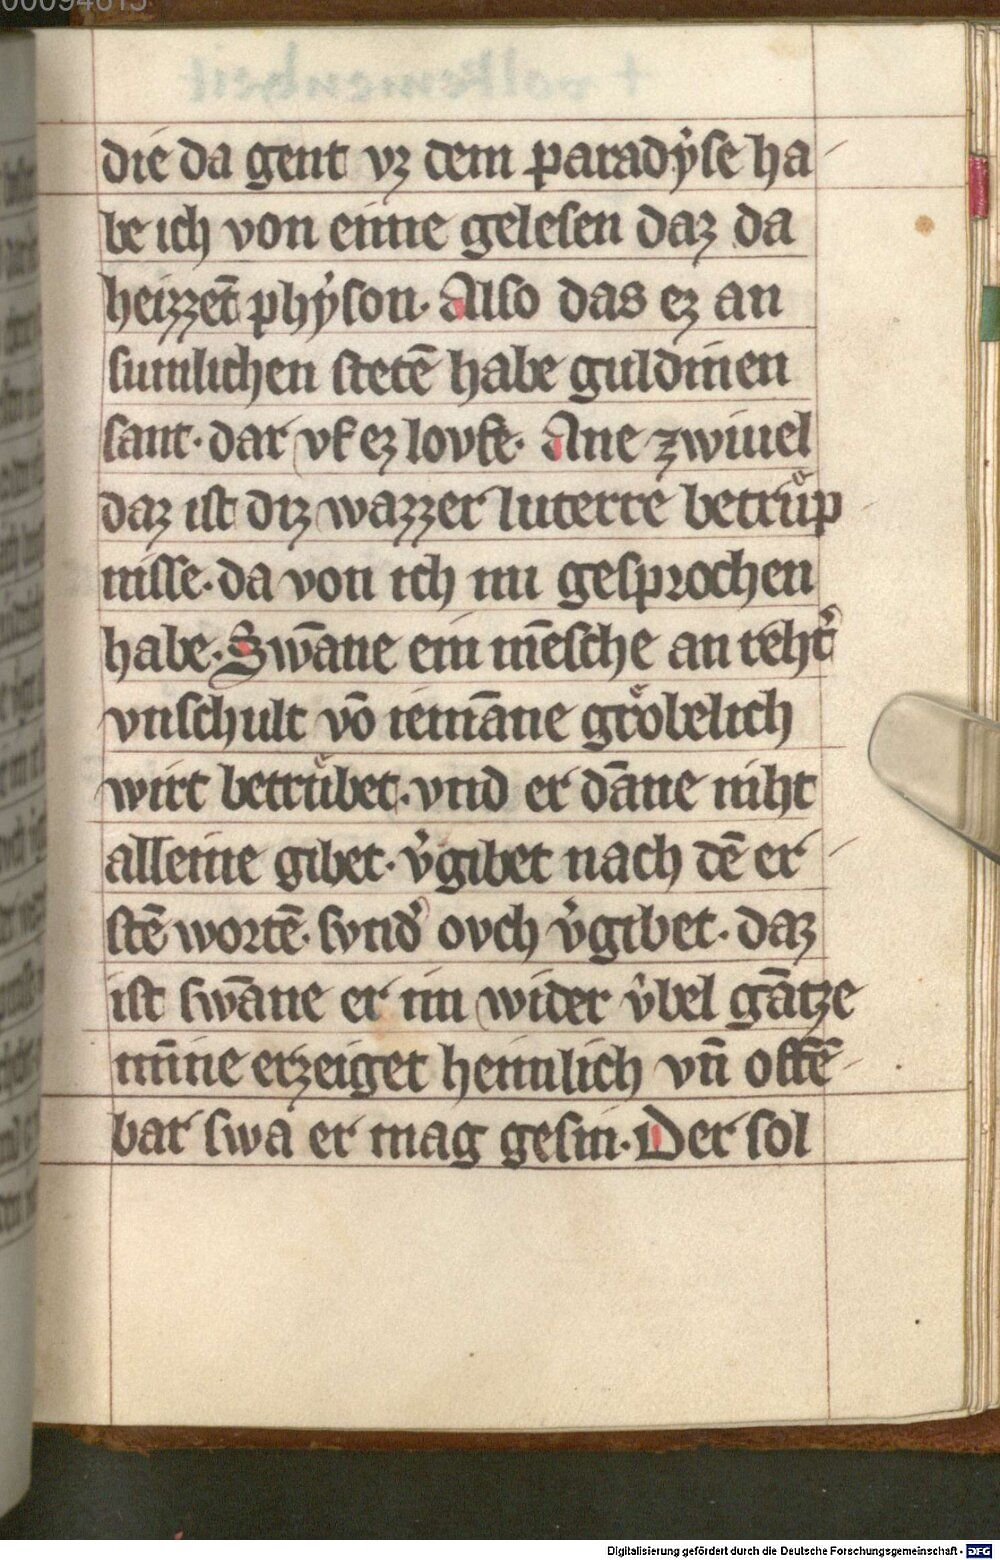 00094615
die da gent vz dem paradẏse ha
be ich von eime gelesen daz da
heizzet̄ phẏson. Also das ez an
sumlichen stetē habe guldinen
sant. dar vf ez lovfe. Ane zwiuel
daz ist diz wazzer luterre betruͤp
nisse. da von ich nu gesprochen
habe. Swāne ein mēsche an reht̉
vnschult vō iemāne groͤbelich
wirt betruͤbet. vnd er dāne niht
alleine gibet. v̉gibet nach dē er
stē wortē. svnd̉ ovch v̉gibet. daz
ist swāne er im wider v̉bel gātze
mīne erzeiget heimlich vn̄ offē
bar swa er mag gesin. Der sol
Digitalisierung gefördert durch die Deutsche Forschungsgemeinschaft - DFG